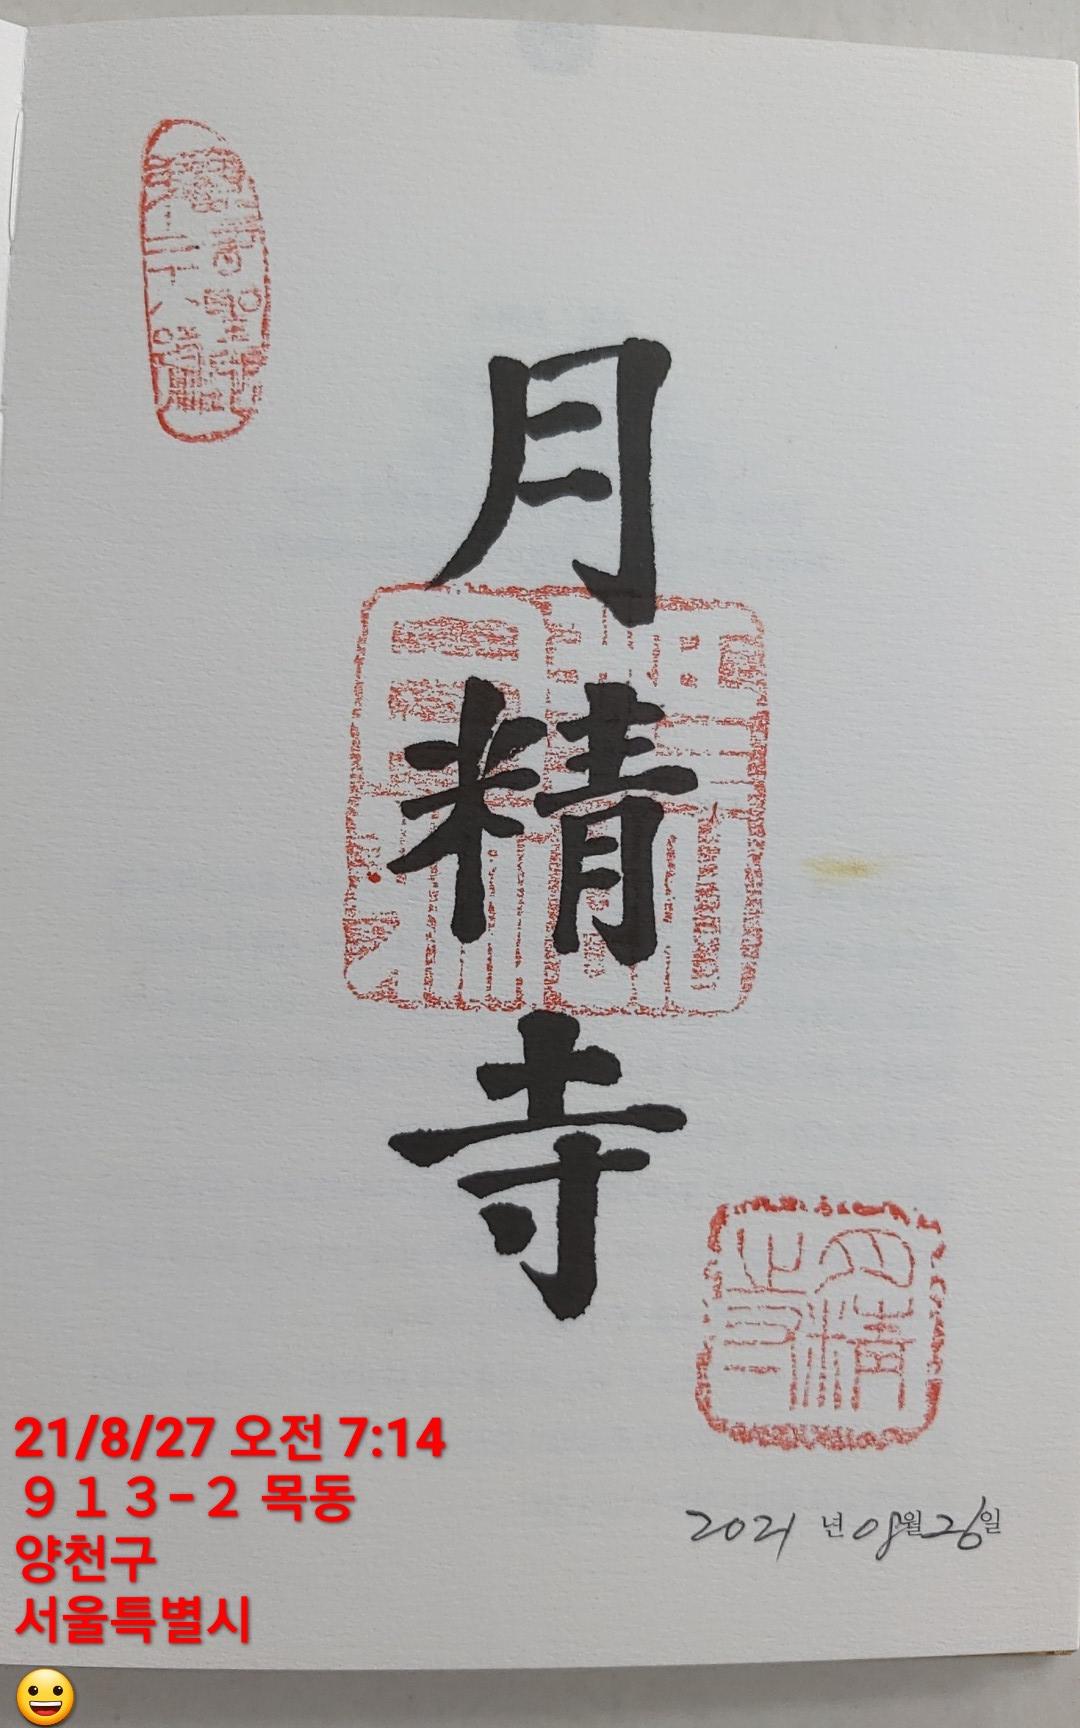 月
精
寺
月精
之印
2021 년 08월 26일
21/8/27 오전 7:14
９１３-２ 목동
양천구
서울특별시